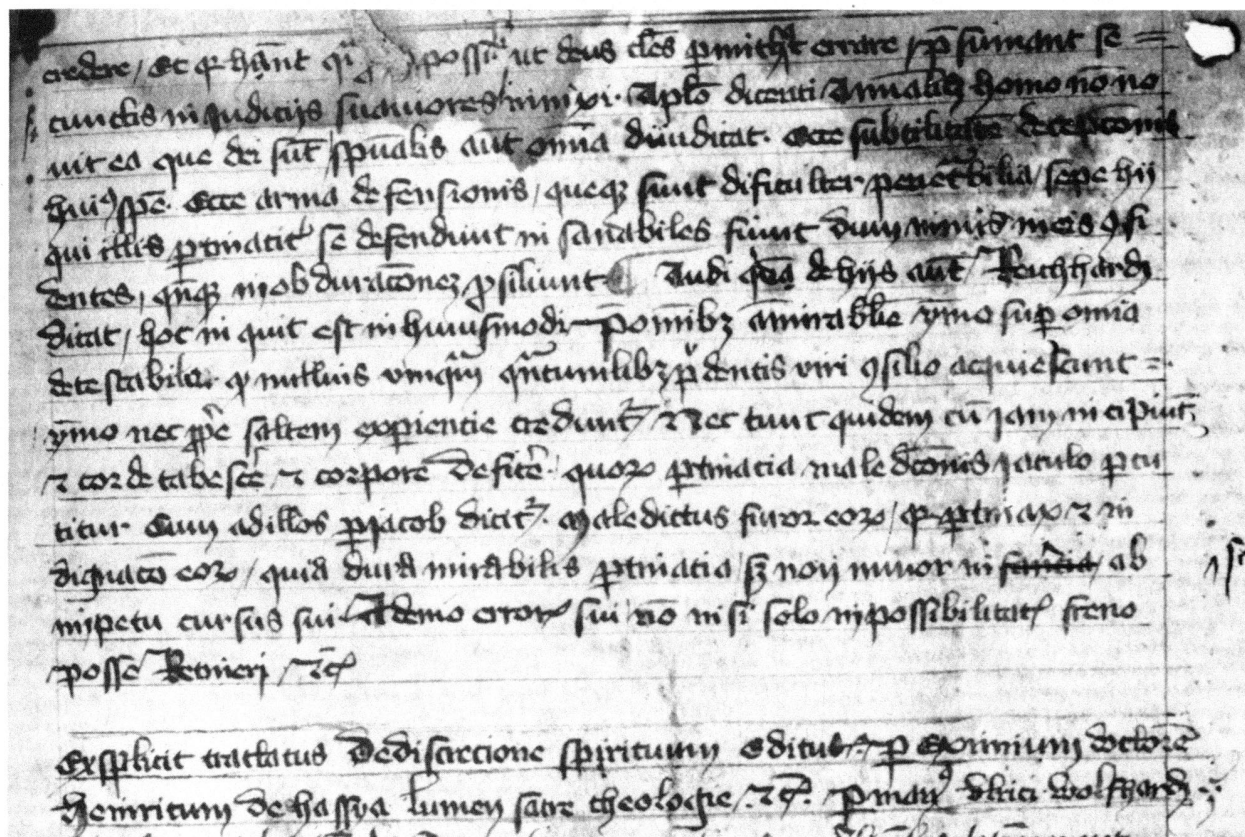 credere / Et qr habent qi possit ut deus tales permitteret errare / presumant se =
cunctis in Judicijs suauiores nimium. Apostolo dicenti Animalis homo non no
uit ea que dei sunt / spiritualis autem omnia diiudicat. Ecce subtilitatem deceptionis
huius spe. Ecce arma defensionis / queque sunt dificulter penetrabilia / sepe hij
qui illis pertinaciter se defendunt in sanabiles fiunt dum nimis in eis confi
dentes, in obduracionem prosiliunt Audi de hijs autem Reichhardi
dicat / hoc in quit est in huiusmodi pre omnibus amirabile ymo super omnia
detestabile quod nullius vmquam quantumlibet prudentis viri consilio acquiescunt =
ymo nec proprie saltem experientie credunt Nec tunc quidem cum jam incipiunt
et corde tabescere et corpore deficere quorum pertinacia maledictionis jaculo percu
titur Cum ad illos per jacob dicitur. Maledictus furor eorum / quia pertinax et in
dignatio eorum / quia dura mirabilis pertinacia / sed non minor in ab
impetu cursus sui A demo erroris sui non nisi solo inpossibilitatis freno
posse Retineri / etc

Exsplicit tractatus De discrecione spirituum Editus per Eximium doctorem
Heinricum de hassya lumen sacre theologie. etc. per manus vlrici wolfhardi